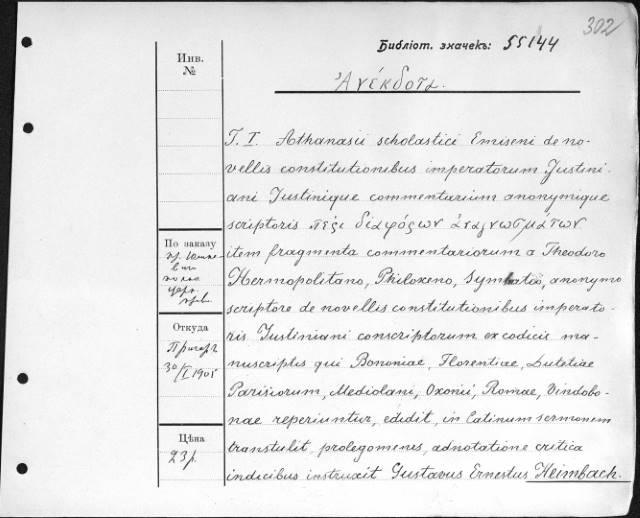 302
Библіот. значекъ: 55144
Ἀνέκδοτα.
Инв.
№
T. I. Athanasii scholastici Emiseni de no-
vellis constitutionibus imperatorum Justini-
ani Justinique commentarium anonymique
scriptoris περὶ διαφόρων ἀναγνωσμάτων
item fragmenta commentariorum a Theodoro
Hermopolitano, Philoxeno, Symbatio, anonymo
scriptore de novellis constitutionibus imperato-
ris Justiniani conscriptorum ex codicis ma-
nuscriptis qui Bononiae, Florentiae, Lutetiae
Parisiorum, Mediolani, Oxonii, Romae, Vindobo-
nae reperiuntur, edidit, in latinum sermonem
transtulit, prolegomenis, adnotatione critica
indicibus instruxit Gustavus Ernestus Heimbach.
По заказу
Откуда
30/I 1905
Цѣна
23 р.